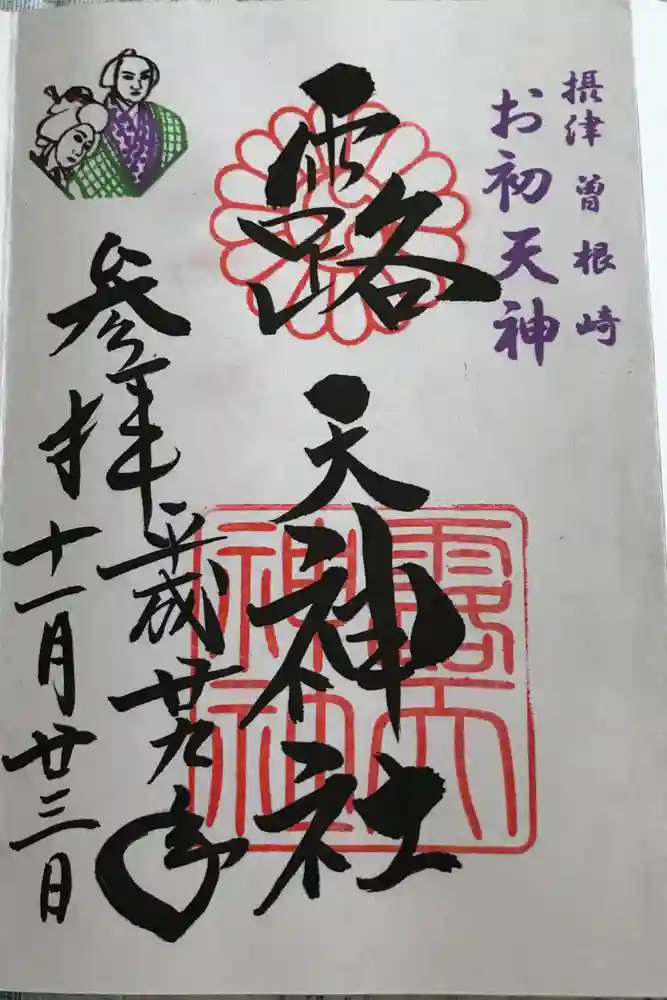 摂津 曽根崎
お初天神
露天神社
露天
神社
参拝
平成廿九年
十一月廿三日